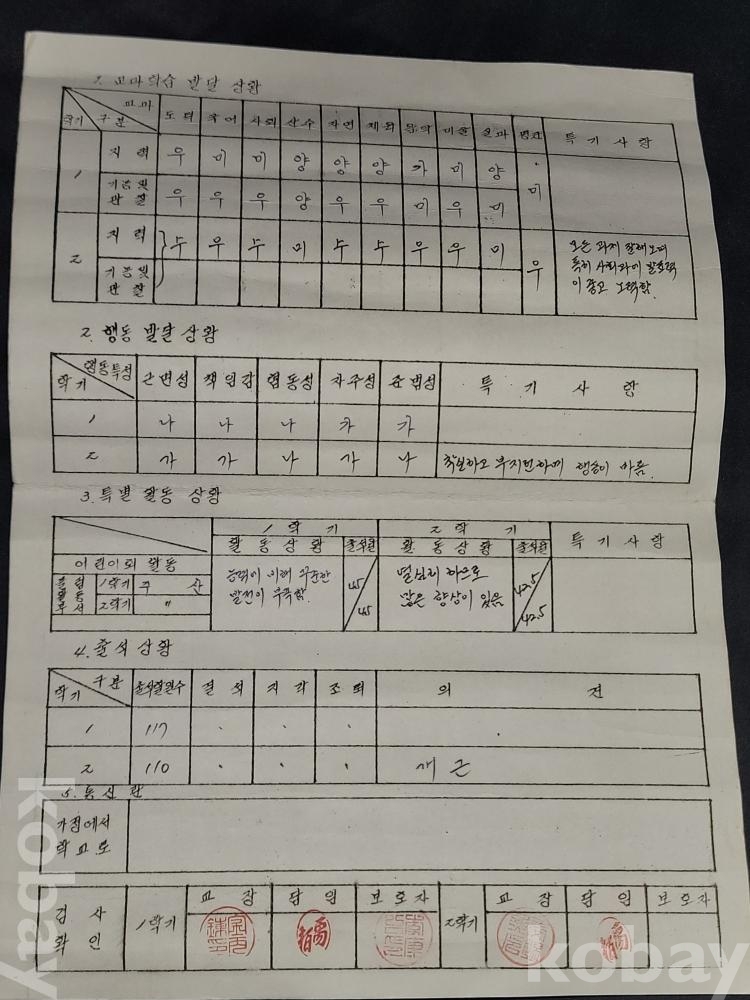 1. 교과학습 발달 상황
학기 구분 교과 도덕 국어 사회 산수 자연 체육 음악 미술 실과 평균 특기사항
1 지력 우 미 미 양 양 양 가 미 양
기능및 관찰 우 우 우 양 우 우 미 우 미 미
2 지력 수 우 수 미 수 수 우 우 미 우
기능및 관찰
모든 과제 잘해오며
특히 사회과에 발표력
이 좋고 노력함.
2. 행동 발달 상황
학기 행동특성 근면성 책임감 협동성 자주성 준법성 특기사항
1 나 나 나 가 가
2 가 가 나 가 나 착실하고 부지런하며 행동이 바름.
3. 특별 활동 상황
1학기 2학기 특기사항
활동상황 출석란 활동상황 출석란
어린이회 활동
활동 부서 1학기 주산
2학기 〃
능력에 비해 꾸준한
발전이 부족함.
45/45
열심히 하므로
많은 향상이 있음
42.5/42.5
4. 출석 상황
학기 구분 출석할일수 결석 지각 조퇴 의견
1 117 · · ·
2 110 · · · 개근
5. 통신란
가정에서
학교로
검사
확인
1학기 교장 담임 보호자
2학기 교장 담임 보호자
kobay
kobay